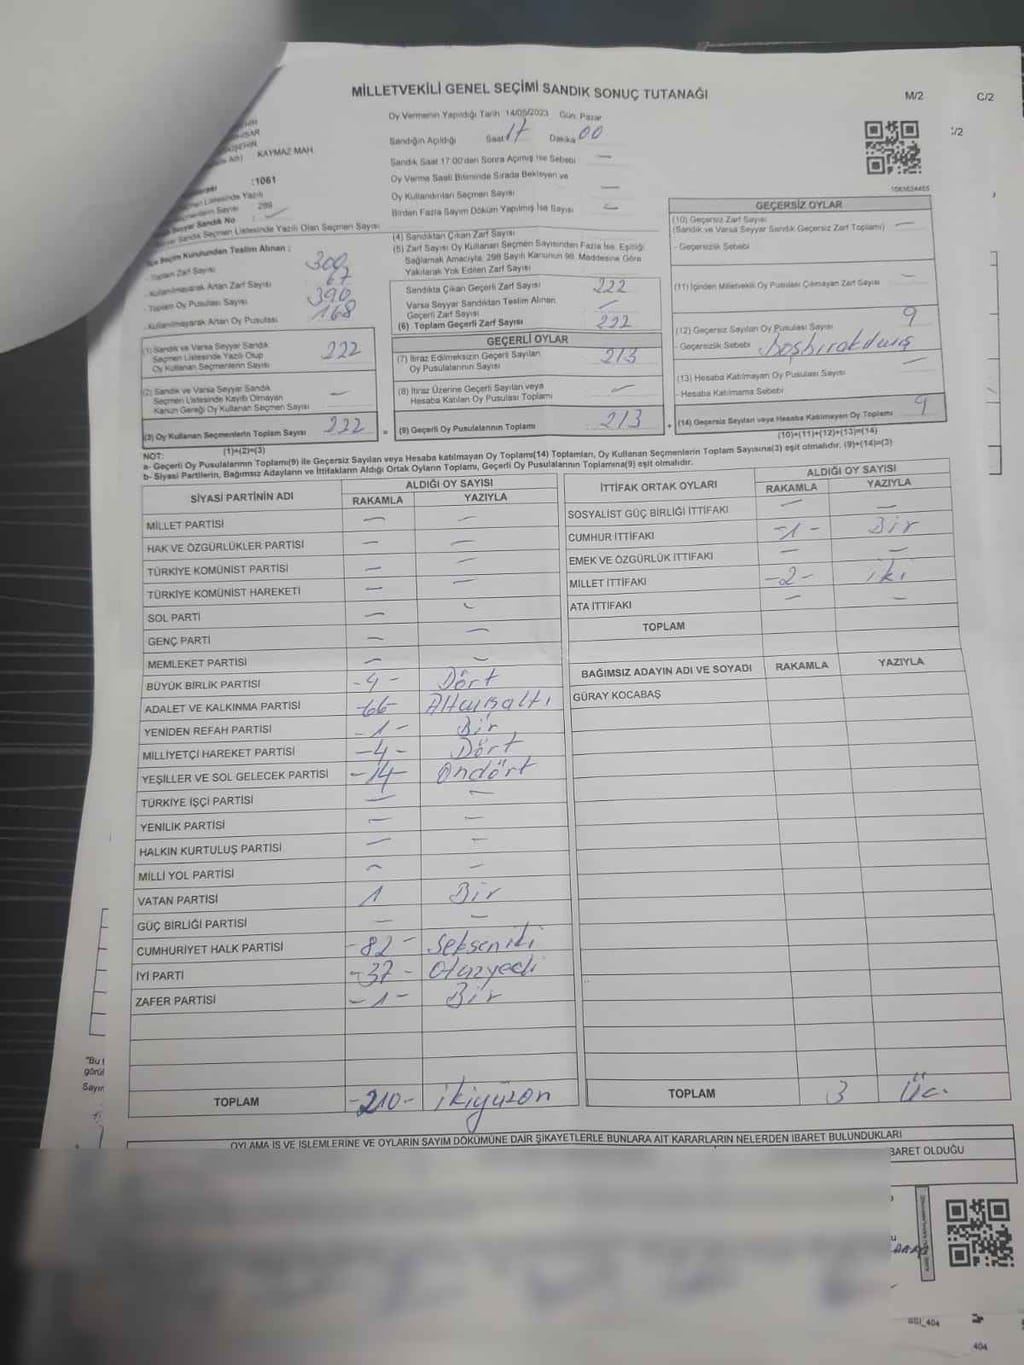 MİLLETVEKİLİ GENEL SEÇİMİ SANDIK SONUÇ TUTANAĞI
M/2
C/2
Oy Vermenin Yapıldığı Tarih :14/05/2023 Gün: Pazar
Sandığın Açıldığı Saat 17 Dakika 00
Sandık Saat 17.00'den Sonra Açılmış İse Sebebi —
Oy Verme Saati Bitiminde Sırada Bekleyen ve
Oy Kullandırılan Seçmen Sayısı —
Birden Fazla Sayım Döküm Yapılmış İse Sayısı —
KAYMAZ MAH.
:1061
Seyyar Sandık No
Seyyar Sandık Seçmen Listesinde Yazılı Olan Seçmen Sayısı
Seçim Kurulundan Teslim Alınan :
Toplam Zarf Sayısı 300
Kullanılmayarak Artan Zarf Sayısı 67
Toplam Oy Pusulası Sayısı 390
Kullanılmayarak Artan Oy Pusulası 168
(1) Sandık ve Varsa Seyyar Sandık
Seçmen Listesinde Yazılı Olup
Oy Kullanan Seçmenlerin Sayısı 222
(2) Sandık ve Varsa Seyyar Sandık
Seçmen Listesinde Kayıtlı Olmayan
Kanun Gereği Oy Kullanan Seçmen Sayısı —
(3) Oy Kullanan Seçmenlerin Toplam Sayısı 222
(1)+(2)=(3)
(4) Sandıktan Çıkan Zarf Sayısı
(5) Zarf Sayısı Oy Kullanan Seçmen Sayısından Fazla İse, Eşitliği
Sağlamak Amacıyla, 298 Sayılı Kanunun 98. Maddesine Göre
Yakılarak Yok Edilen Zarf Sayısı
Sandıkta Çıkan Geçerli Zarf Sayısı 222
Varsa Seyyar Sandıktan Teslim Alınan
Geçerli Zarf Sayısı —
(6) Toplam Geçerli Zarf Sayısı 222
GEÇERLİ OYLAR
(7) İtiraz Edilmeksizin Geçerli Sayılan
Oy Pusulalarının Sayısı 213
(8) İtiraz Üzerine Geçerli Sayılan veya
Hesaba Katılan Oy Pusulası Toplamı —
= (9) Geçerli Oy Pusulalarının Toplamı 213 +
GEÇERSİZ OYLAR
(10) Geçersiz Zarf Sayısı
(Sandık ve Varsa Seyyar Sandık Geçersiz Zarf Toplamı) —
- Geçersizlik Sebebi
(11) İçinden Milletvekili Oy Pusulası Çıkmayan Zarf Sayısı —
(12) Geçersiz Sayılan Oy Pusulası Sayısı 9
- Geçersizlik Sebebi
(13) Hesaba Katılmayan Oy Pusulası Sayısı —
- Hesaba Katılmama Sebebi
(14) Geçersiz Sayılan veya Hesaba Katılmayan Oy Toplamı 9
(10)+(11)+(12)+(13)=(14)
NOT:
a- Geçerli Oy Pusulalarının Toplamı(9) ile Geçersiz Sayılan veya Hesaba katılmayan Oy Toplamı(14) Toplamları, Oy Kullanan Seçmenlerin Toplam Sayısına(3) eşit olmalıdır. (9)+(14)=(3)
b- Siyasi Partilerin, Bağımsız Adayların ve İttifakların Aldığı Ortak Oyların Toplamı, Geçerli Oy Pusulalarının Toplamına(9) eşit olmalıdır.
SİYASİ PARTİNİN ADI
ALDIĞI OY SAYISI
RAKAMLA YAZIYLA
MİLLET PARTİSİ — —
HAK VE ÖZGÜRLÜKLER PARTİSİ — —
TÜRKİYE KOMÜNİST PARTİSİ — —
TÜRKİYE KOMÜNİST HAREKETİ — —
SOL PARTİ — —
GENÇ PARTİ — —
MEMLEKET PARTİSİ — —
BÜYÜK BİRLİK PARTİSİ -4- Dört
ADALET VE KALKINMA PARTİSİ -66- Altmışaltı
YENİDEN REFAH PARTİSİ -1- Bir
MİLLİYETÇİ HAREKET PARTİSİ -4- Dört
YEŞİLLER VE SOL GELECEK PARTİSİ -14- Ondört
TÜRKİYE İŞÇİ PARTİSİ — —
YENİLİK PARTİSİ — —
HALKIN KURTULUŞ PARTİSİ — —
MİLLİ YOL PARTİSİ — —
VATAN PARTİSİ 1 Bir
GÜÇ BİRLİĞİ PARTİSİ — —
CUMHURİYET HALK PARTİSİ -82- Sekseniki
İYİ PARTİ -37- Otuzyedi
ZAFER PARTİSİ -1- Bir
TOPLAM -210- ikiyüzon
İTTİFAK ORTAK OYLARI
ALDIĞI OY SAYISI
RAKAMLA YAZIYLA
SOSYALİST GÜÇ BİRLİĞİ İTTİFAKI — —
CUMHUR İTTİFAKI -1- Bir
EMEK VE ÖZGÜRLÜK İTTİFAKI — —
MİLLET İTTİFAKI -2- iki
ATA İTTİFAKI — —
TOPLAM
BAĞIMSIZ ADAYIN ADI VE SOYADI RAKAMLA YAZIYLA
GÜRAY KOCABAŞ
TOPLAM 3 Üç.
OYLAMA İŞ VE İŞLEMLERİNE VE OYLARIN SAYIM DÖKÜMÜNE DAİR ŞİKAYETLERLE BUNLARA AİT KARARLARIN NELERDEN İBARET BULUNDUKLARI
BARET OLDUĞU
404